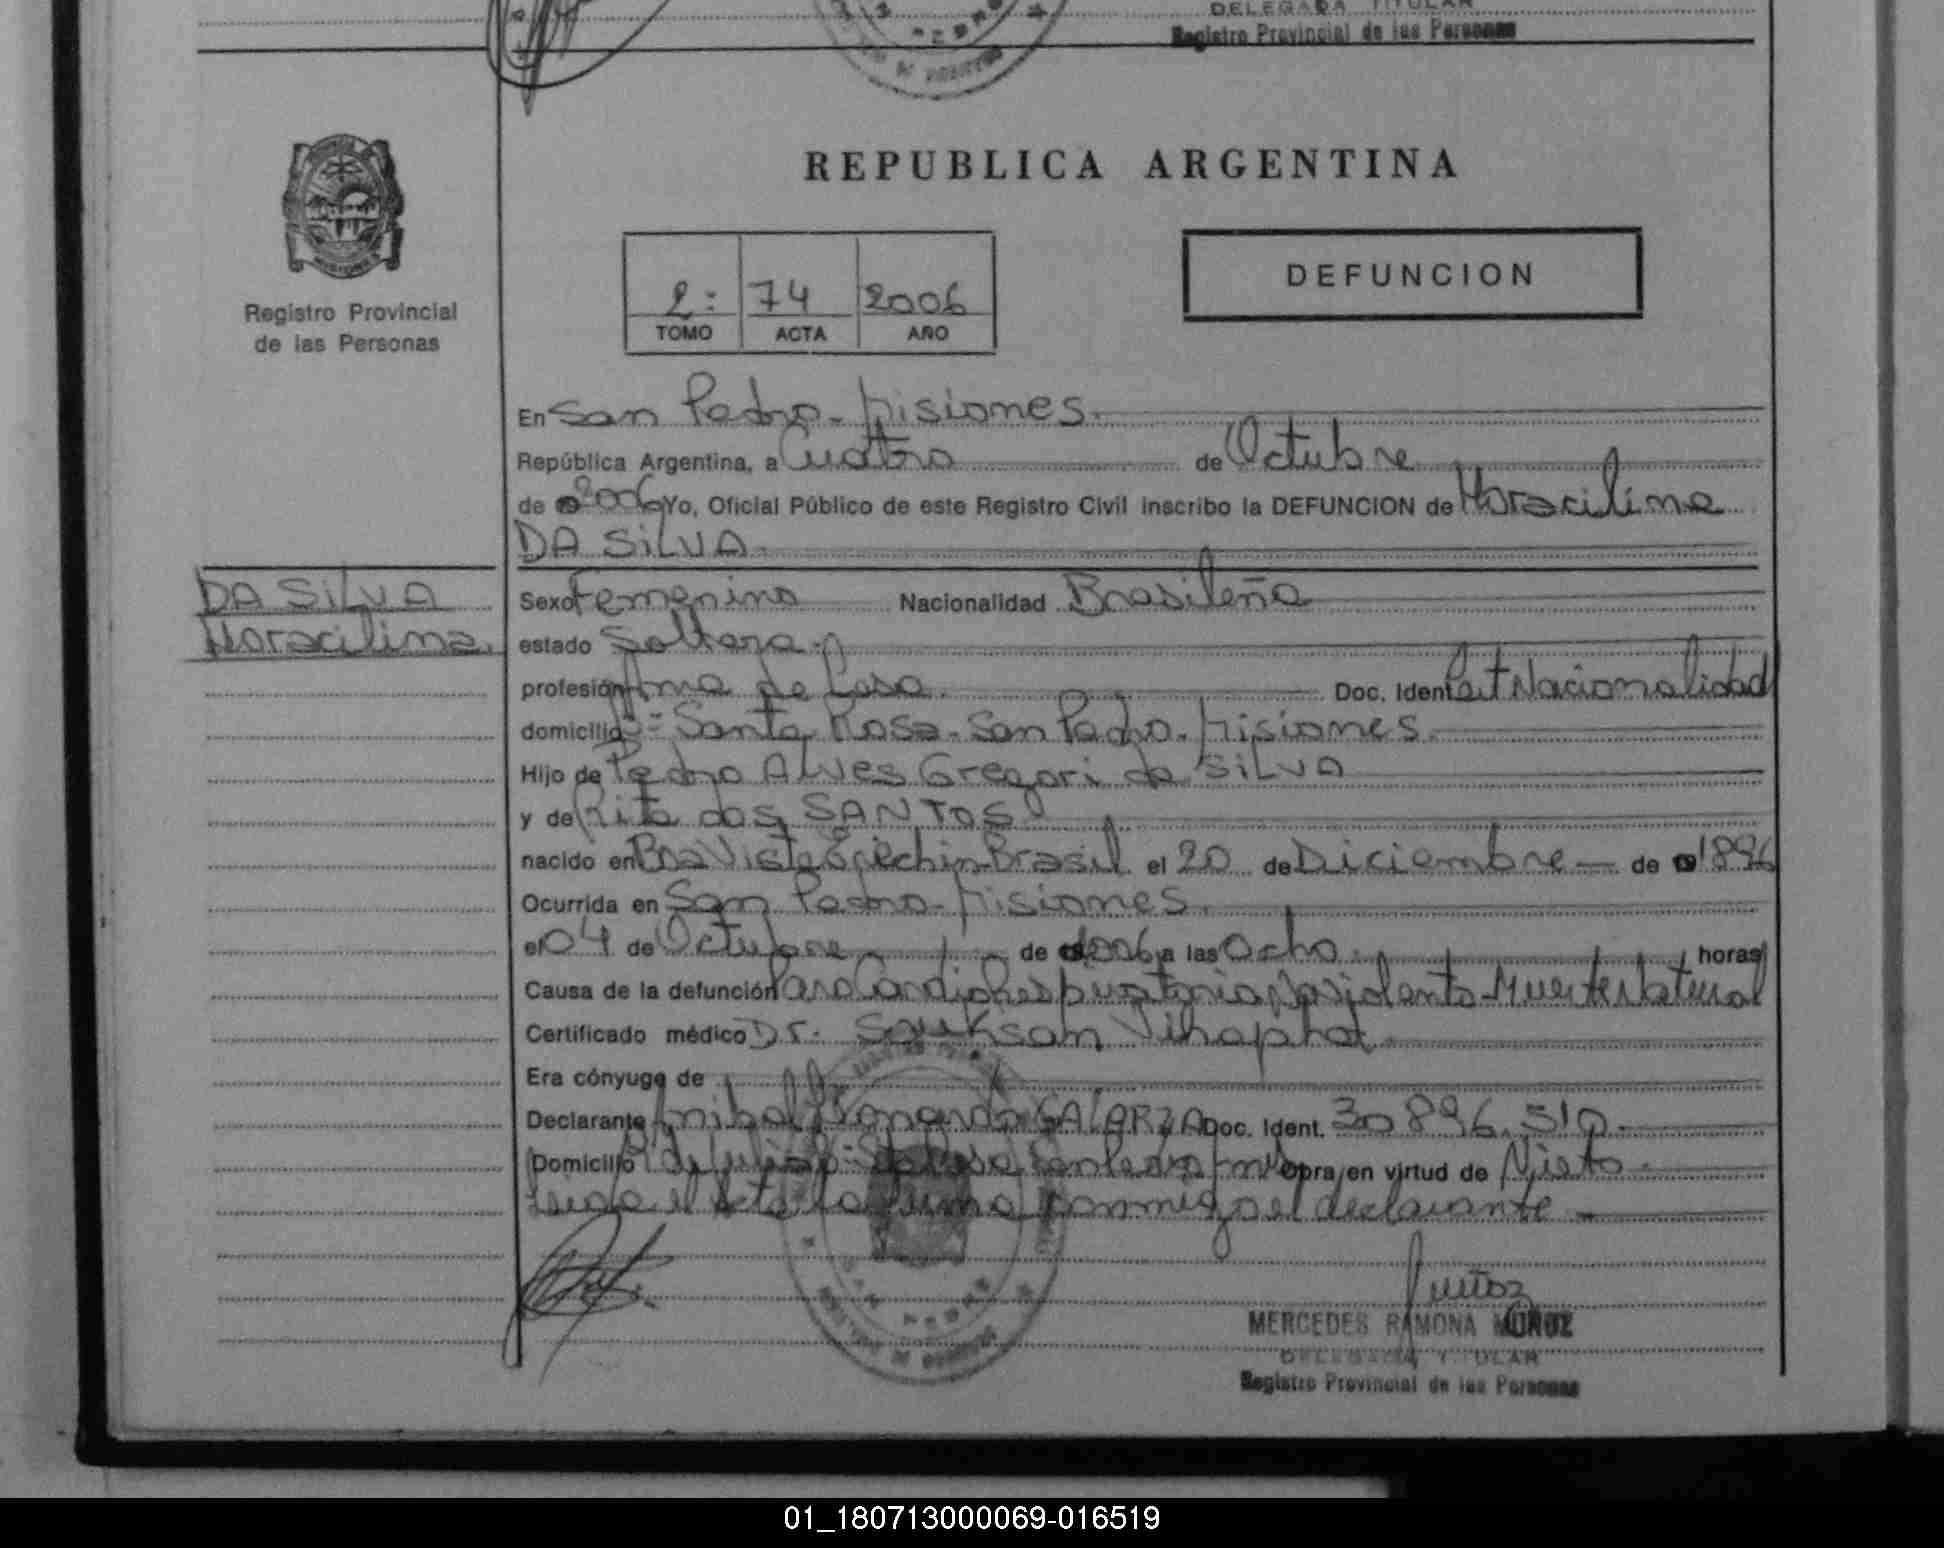 DELEGADA TITULAR
Registro Provincial de las Personas
REPUBLICA ARGENTINA
MISIONES
Registro Provincial
de las Personas
2: 74 2006
TOMO ACTA AÑO
DEFUNCION
En San Pedro - Misiones.
República Argentina, a Cuatro de Octubre
de 2006 Yo, Oficial Público de este Registro Civil inscribo la DEFUNCION de Horacilina
DA SILVA.
DA SILVA
Horacilina.
Sexo Femenino Nacionalidad Brasileña
estado Soltera.
profesión Ama de Casa. Doc. Ident. Cert Nacionalidad
domicilio Santa Rosa - San Pedro - Misiones.
Hijo de Pedro ALVES Gregori da SILVA
y de Rita dos SANTOS
nacido en Boa Vista Erechin - Brasil el 20 de Diciembre - de 1896
Ocurrida en San Pedro - Misiones.
el 04 de Octubre de 2006 a las Ocho. horas
Causa de la defunción Paro Cardio Respiratorio No Violento - Muerte Natural
Certificado médico Dr.
Era cónyuge de
Declarante Anibal GALARZA Doc. Ident. 30.896.510.
Domicilio 9 de Julio Opra en virtud de Nieto.
Leida el Acta la firma conmigo el declarante
Muñoz
MERCEDES RAMONA MUÑOZ
DELEGADA TITULAR
Registro Provincial de las Personas
01_180713000069-016519